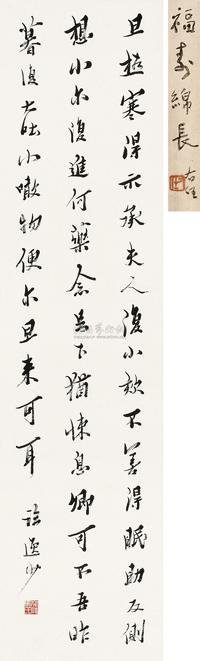 旦極寒得示承夫人復小欬不善得眠助反側
想小尔復進何藥念足下猶悚息卿可不吾昨
暮復大吐小噉物便尔旦来可耳 臨逸少
福壽綿長
右任